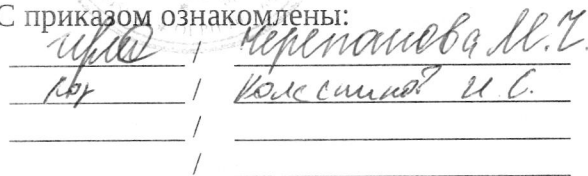 С приказом ознакомлены:
/ Черепанова М.Г.
/ Колесников И.С.
/
/